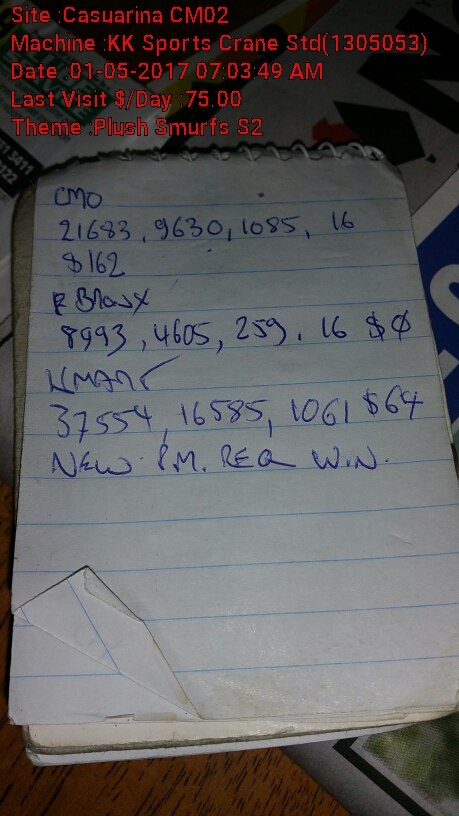 Site :Casuarina CM02
Machine :KK Sports Crane Std(1305053)
Date :01-05-2017 07:03:49 AM
Last Visit $/Day :75.00
Theme :Plush Smurfs S2
CMO
21683, 9630, 1085, 16
$162
BMOWX
8993, 4605, 259, 16 $0
KMART
37554, 16585, 1061 $64
NEW P.M. REQ WIN.